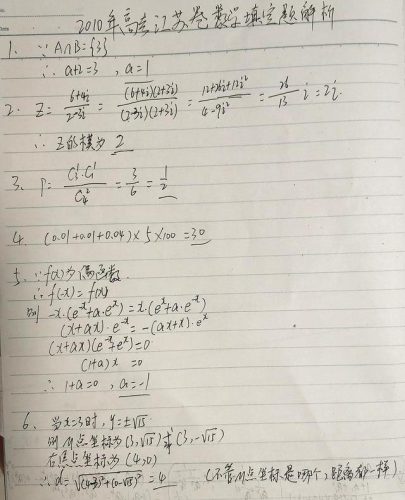 2010年高考江苏卷数学填空题解析
1. ∵ A∩B={3}
∴ a+2=3 , a=1
2. Z = (6+4i)/(2-3i) = (6+4i)(2+3i)/(2-3i)(2+3i) = (12+26i+12i²)/(4-9i²) = 26/13 i = 2i.
∴ Z的模为 2
3. P = C₃¹·C₁¹/C₄² = 3/6 = 1/2
4. (0.01+0.01+0.04)×5×100=30
5. ∵ f(x)为偶函数.
∴ f(-x) = f(x)
则 -x·(e⁻ˣ+a·eˣ)=x·(eˣ+a·e⁻ˣ)
(x+ax)·e⁻ˣ = -(ax+x)·eˣ
(x+ax)(e⁻ˣ+eˣ)=0
(1+a)x =0
∴ 1+a=0 , a=-1
6. 当x=3时, y=±√15
则 M点坐标为(3,√15)或(3,-√15)
右焦点坐标为(4,0)
∴ d=√(4-3)²+(0-√15)²=4 (不管M点坐标是哪个,距离都一样)